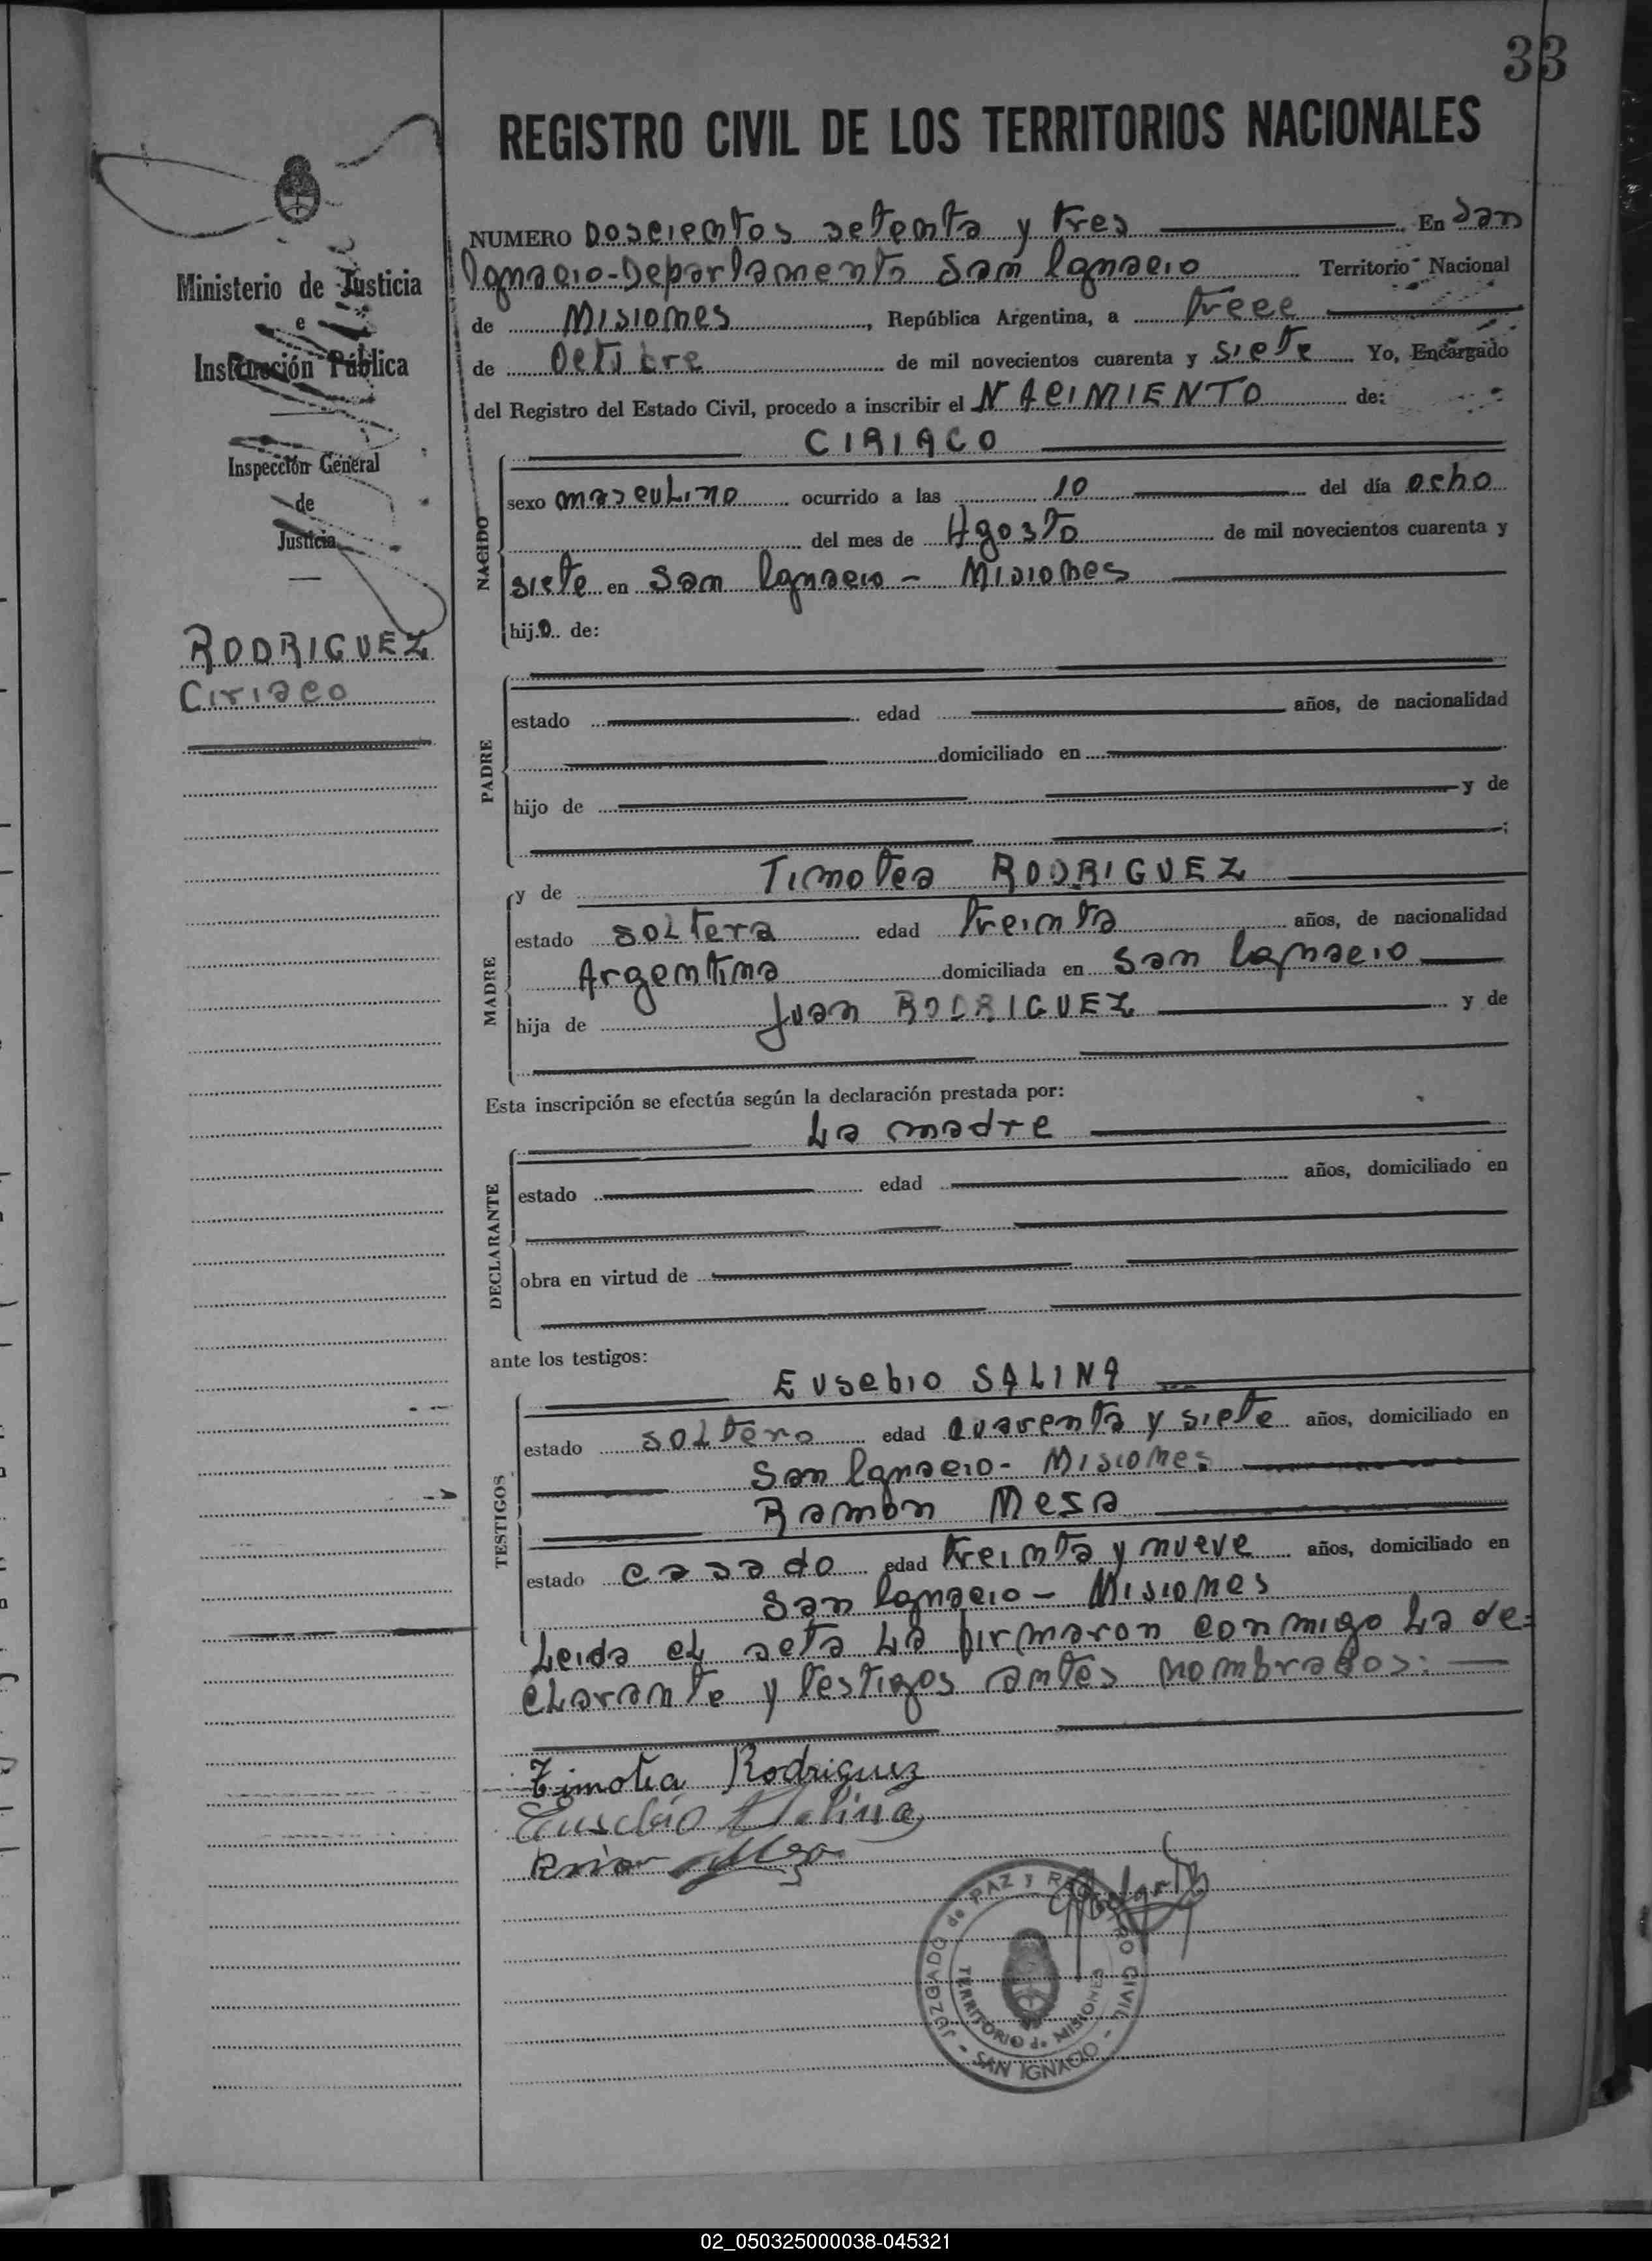 33
REGISTRO CIVIL DE LOS TERRITORIOS NACIONALES
Ministerio de Justicia
e
Instrucción Pública
Inspección General
de
Justicia
RODRIGUEZ
Ciriaco
NUMERO Doscientos setenta y tres En San
Ignacio-Departamento San Ignacio Territorio Nacional
de Misiones, República Argentina, a trece
de Octubre de mil novecientos cuarenta y siete Yo, Encargado
del Registro del Estado Civil, procedo a inscribir el NACIMIENTO de:
CIRIACO
NACIDO
sexo masculino ocurrido a las 10 del día ocho
del mes de Agosto de mil novecientos cuarenta y
siete en San Ignacio - Misiones
hijo de:
PADRE
estado edad años, de nacionalidad
domiciliado en
hijo de y de
;
MADRE
y de Timotea RODRIGUEZ
estado soltera edad treinta años, de nacionalidad
Argentina domiciliada en San Ignacio
hija de Juan RODRIGUEZ y de
Esta inscripción se efectúa según la declaración prestada por:
La madre
DECLARANTE
estado edad años, domiciliado en
obra en virtud de
ante los testigos:
TESTIGOS
Eusebio SALINA
estado soltero edad cuarenta y siete años, domiciliado en
San Ignacio - Misiones
Ramón Mesa
estado casado edad treinta y nueve años, domiciliado en
San Ignacio - Misiones
Leida el acta la firmaron conmigo la de=
clarante y testigos antes nombrados:
Timotea Rodriguez
Eusebio Salina
JUZGADO de PAZ y REGISTRO CIVIL
TERRITORIO de MISIONES
- SAN IGNACIO -
02_050325000038-045321